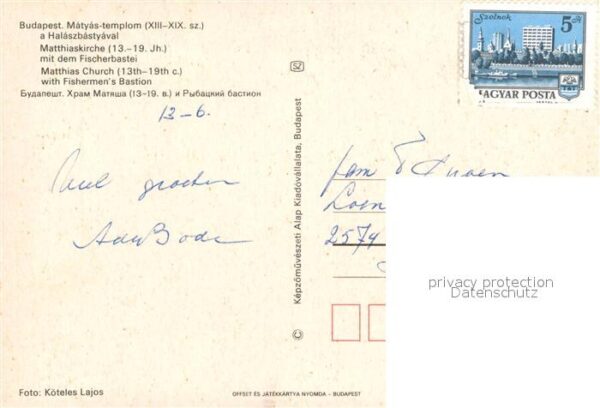 Budapest. Mátyás-templom (XIII–XIX. sz.)
a Halászbástyával
Matthiaskirche (13.–19. Jh.)
mit dem Fischerbastei
Matthias Church (13th–19th c.)
with Fishermen's Bastion
Будапешт. Храм Матяша (13–19. в.) и Рыбацкий бастион
13-6.
Veel groeten
Foto: Köteles Lajos
Képzőművészeti Alap Kiadóvállalata, Budapest
©
OFFSET ÉS JÁTÉKKÁRTYA NYOMDA – BUDAPEST
Szolnok
5 Ft
MAGYAR POSTA
fam
2574
privacy protection
Datenschutz